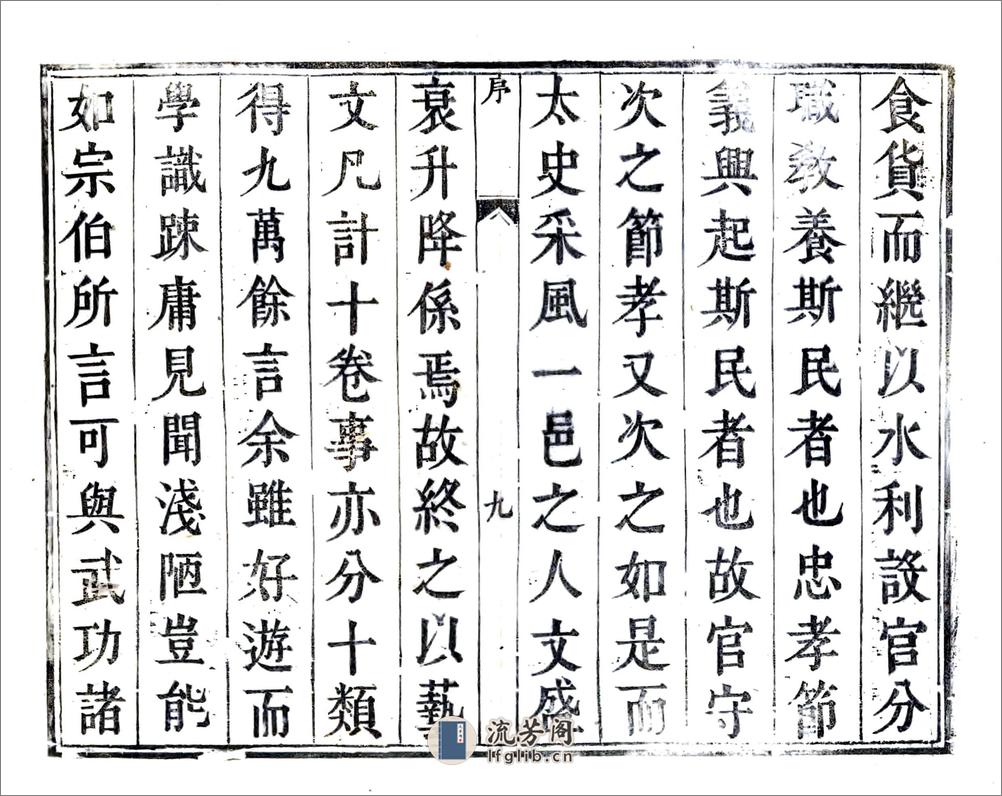 食貨而繼以水利設官分
職教養斯民者也忠孝節
義興起斯民者也故官守
次之節孝又次之如是而
太史采風一邑之人文盛
序
九
衰升降係焉故終之以藝
文凡計十卷事亦分十類
得九萬餘言余雖好遊而
學識踈庸見聞淺陋豈能
如宗伯所言可與武功諸
流芳阁
lfglib.cn